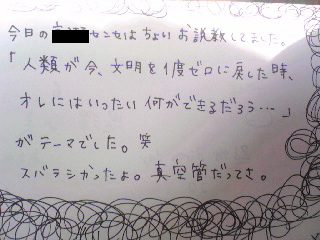 今日の センセはちょいお説教してました。
「人類が今、文明を1度ゼロに戻した時、
オレにはいったい何ができるだろう…」
がテーマでした。笑
スバラシかったよ。真空管だってさ。